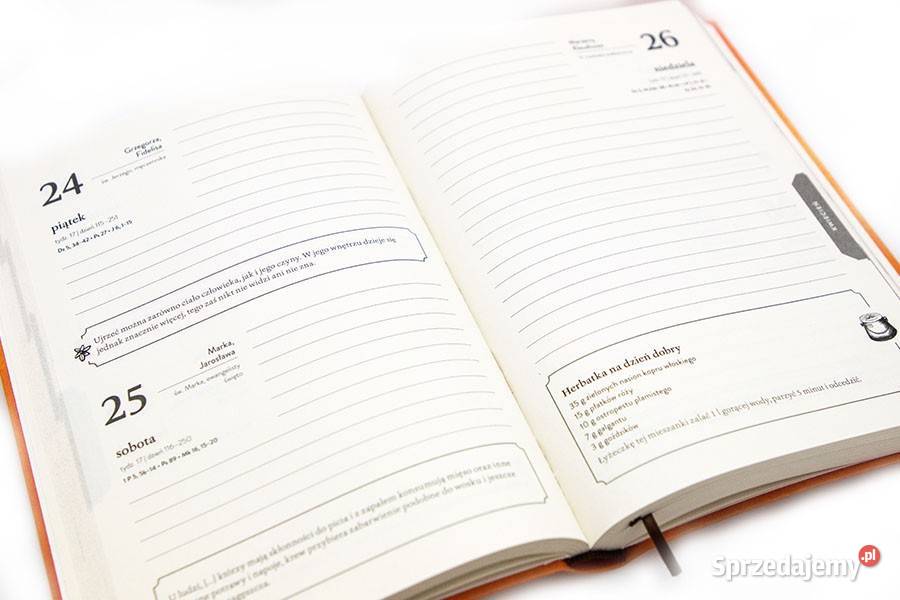 24
Grzegorza,
Fidelisa
św. Jerzego, męczennika
piątek
tydz. 17 | dzień 115–251
Dz 5, 34-42 • Ps 27 • J 6, 1-15
Ujrzeć można zarówno ciało człowieka, jak i jego czyny. W jego wnętrzu dzieje się
jednak znacznie więcej, tego zaś nikt nie widzi ani nie zna.
25
Marka,
Jarosława
św. Marka, ewangelisty
święto
sobota
tydz. 17 | dzień 116–250
1 P 5, 5b-14 • Ps 89 • Mk 16, 15-20
U ludzi, (...) którzy mają skłonności do picia i z zapałem konsumują mięso oraz inne
potrawy i napoje, krew przybiera zabarwienie podobne do wosku i jeszcze
26
niedziela
KWIECIEŃ
Herbatka na dzień dobry
35 g zielonych nasion kopru włoskiego
15 g płatków róży
10 g ostropestu plamistego
7 g galgantu
3 g goździków
Łyżeczkę tej mieszanki zalać 1 l gorącej wody, parzyć 5 minut i odcedzić.
Sprzedajemy.pl